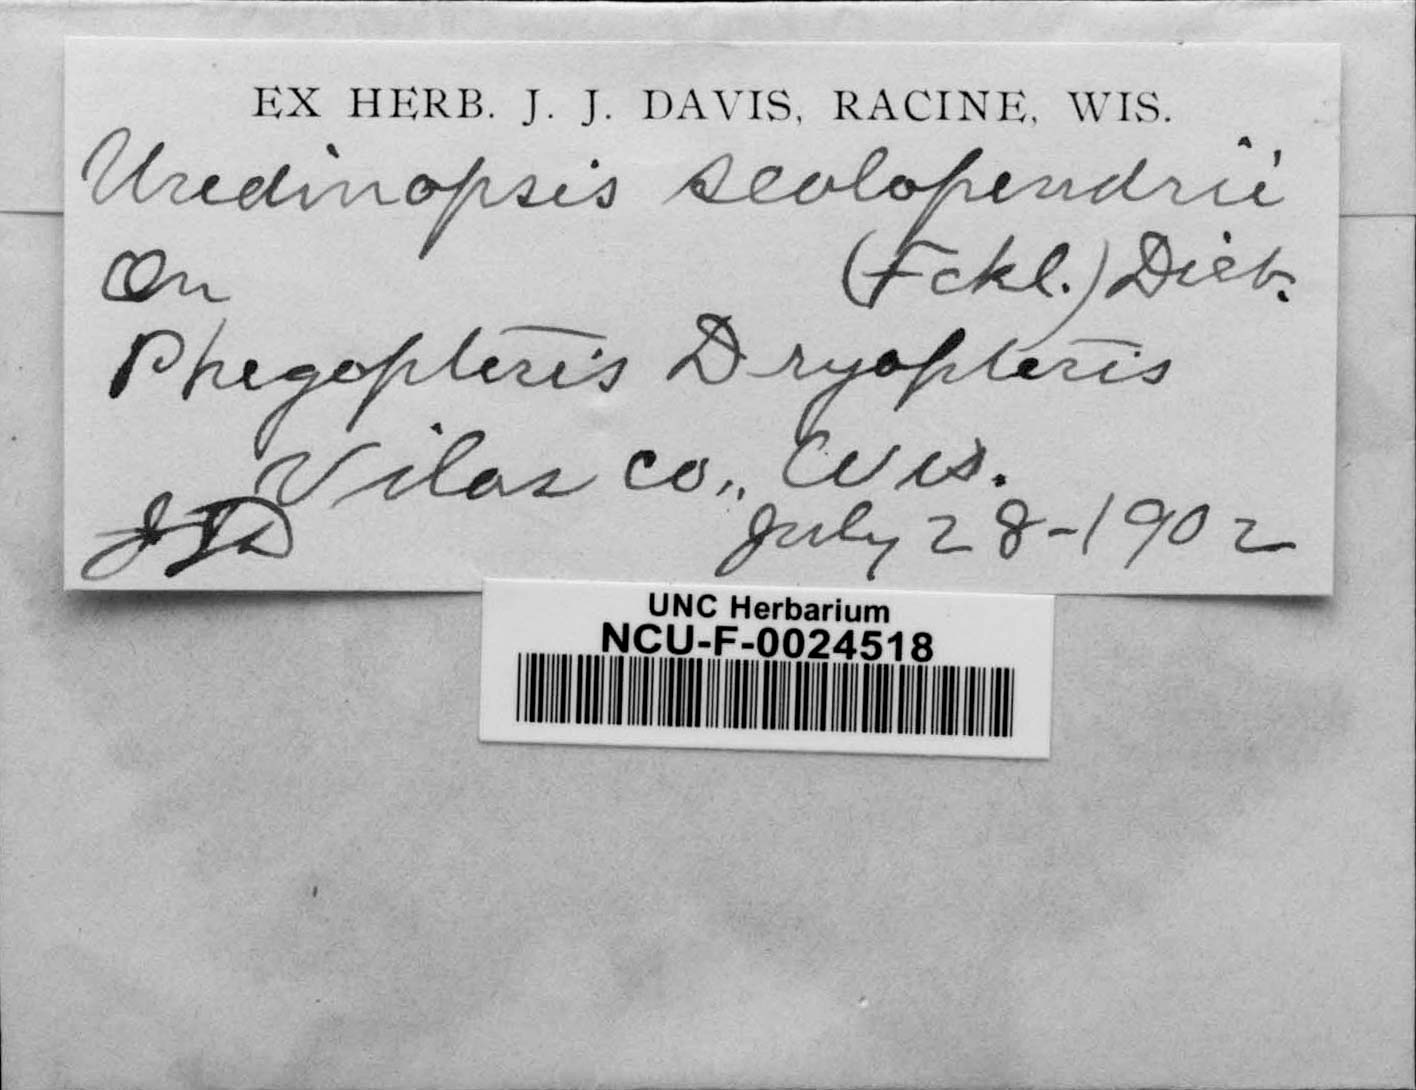 EX HERB. J. J. DAVIS, RACINE, WIS.
Uredinopsis scolopendrii
On (Fckl.) Diet.
Phegopteris Dryopteris
Vilas co., Wis.
JJD July 28-1902
UNC Herbarium
NCU-F-0024518